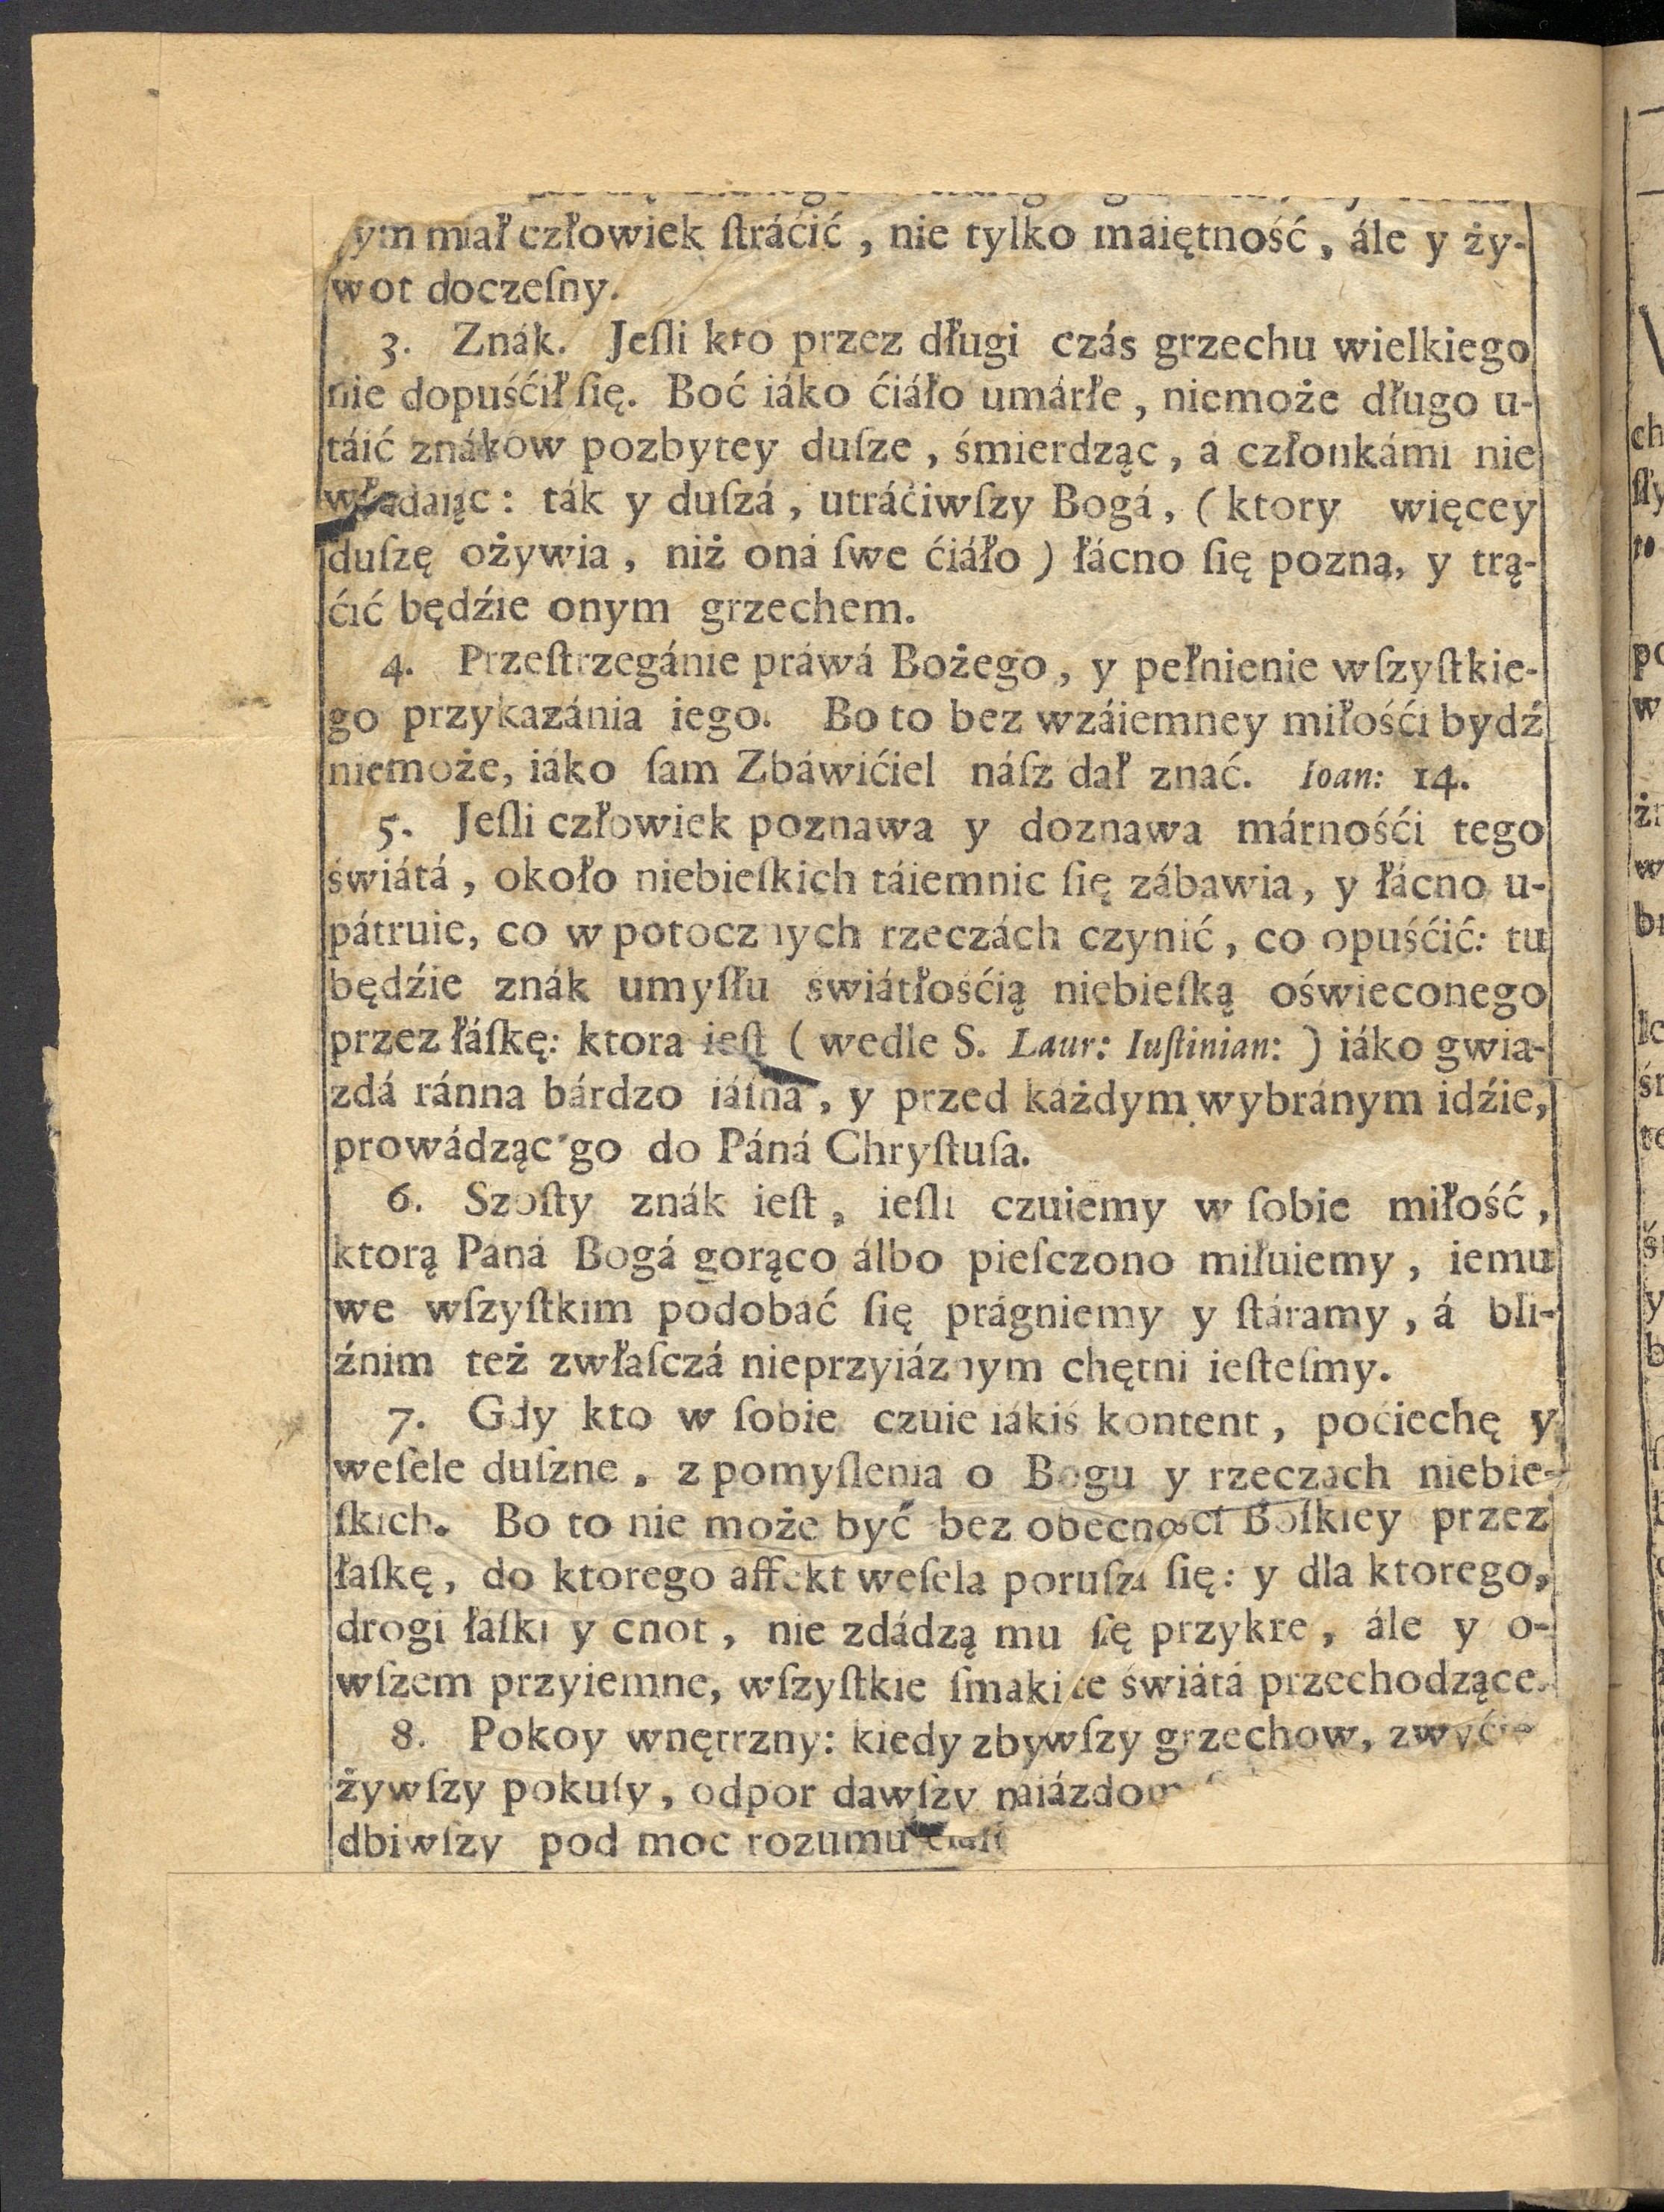 ym miał człowiek ſtráćić, nie tylko máiętność, ále y ży-
wot doczeſny.
3. Znák. Jeſli kto przez długi czás grzechu wielkiego
nie dopuśćił ſię. Boć iáko ćiáło umárłe, niemoże długo u-
táić znákow pozbytey duſze, śmierdząc, á członkámi nie
władaiąc: ták y duſzá, utráćiwſzy Bogá, (ktory więcey
duſzę ożywia, niż oná ſwe ćiáło) łácno ſię pozna, y trą-
ćić będźie onym grzechem.
4. Przeſtrzegánie práwá Bożego, y pełnienie wſzyſtkie-
go przykazánia iego. Bo to bez wzáiemney miłośći bydź
niemoże, iáko ſam Zbáwićiel náſz dał znać. Ioan: 14.
5. Jeſli człowiek poznawa y doznawa márnośći tego
świátá, około niebieſkich táiemnic ſię zábawia, y łácno u-
pátruie, co w potocznych rzeczách czynić, co opuśćić: tu
będźie znák umyſłu świátłośćią niebieſką oświeconego
przez łáſkę: ktora ieſt (wedle S. Laur: Iuſtinian:) iáko gwia-
zdá ránna bárdzo iáſna, y przed káżdym wybránym idźie,
prowádząc go do Páná Chryſtuſa.
6. Szoſty znák ieſt, ieſli czuiemy w ſobie miłość,
ktorą Páná Bogá gorąco álbo pieſczono miłuiemy, iemu
we wſzyſtkim podobać ſię prágniemy y ſtáramy, á bli-
źnim też zwłaſczá nieprzyiáznym chętni ieſteſmy.
7. Gdy kto w ſobie czuie iákiś kontent, poćiechę y
weſele duſzne, z pomyſlenia o Bogu y rzeczach niebie-
ſkich. Bo to nie może być bez obecnośći Boſkiey przez
łaſkę, do ktorego affekt weſela poruſza ſię: y dla ktorego,
drogi łáſki y cnot, nie zdádzą mu ſię przykre, ále y o-
wſzem przyiemne, wſzyſtkie ſmaki te świátá przechodzące.
8. Pokoy wnętrzny: kiedy zbywſzy grzechow, zwyćię
żywſzy pokuſy, odpor dawſzy niázdom
dbiwſzy pod moc rozumu